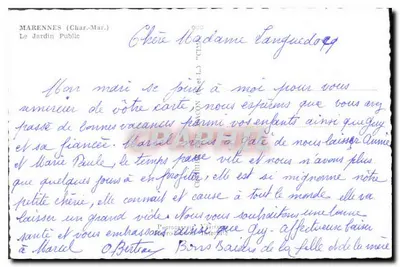 MARENNES (Char.-Mar.)
Le Jardin Public
Chère Madame Languedocq
Mon mari se joint à moi pour vous
remercier de votre carte, nous espérons que vous avez
passé de bonnes vacances parmi vos enfants ainsi que Guy
et sa fiancée. Marcel a hâte de nous laisser Annie
et Marie Paule, le temps passe vite et nous n'avons plus
que quelques jours à en profiter, elle est si mignonne notre
petite chérie, elle connait et cause à tout le monde elle va
laisser un grand vide. Nous vous souhaitons une bonne
santé et vous embrassons ainsi que Guy - affectueux baiser
à Marcel Bons Baisers de la fille et de la mère